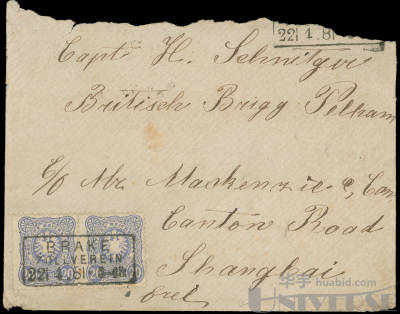 22 4 81
Capt H. Schnitger
Britisch Brigg Pelham
C/o Mr. Mackenzie & Com
Canton Road
Shanghai
BRAKE
ZOLLVEREIN
22 4 81 5-6N
20
20
华宇 huabid.com
UNIVERSE